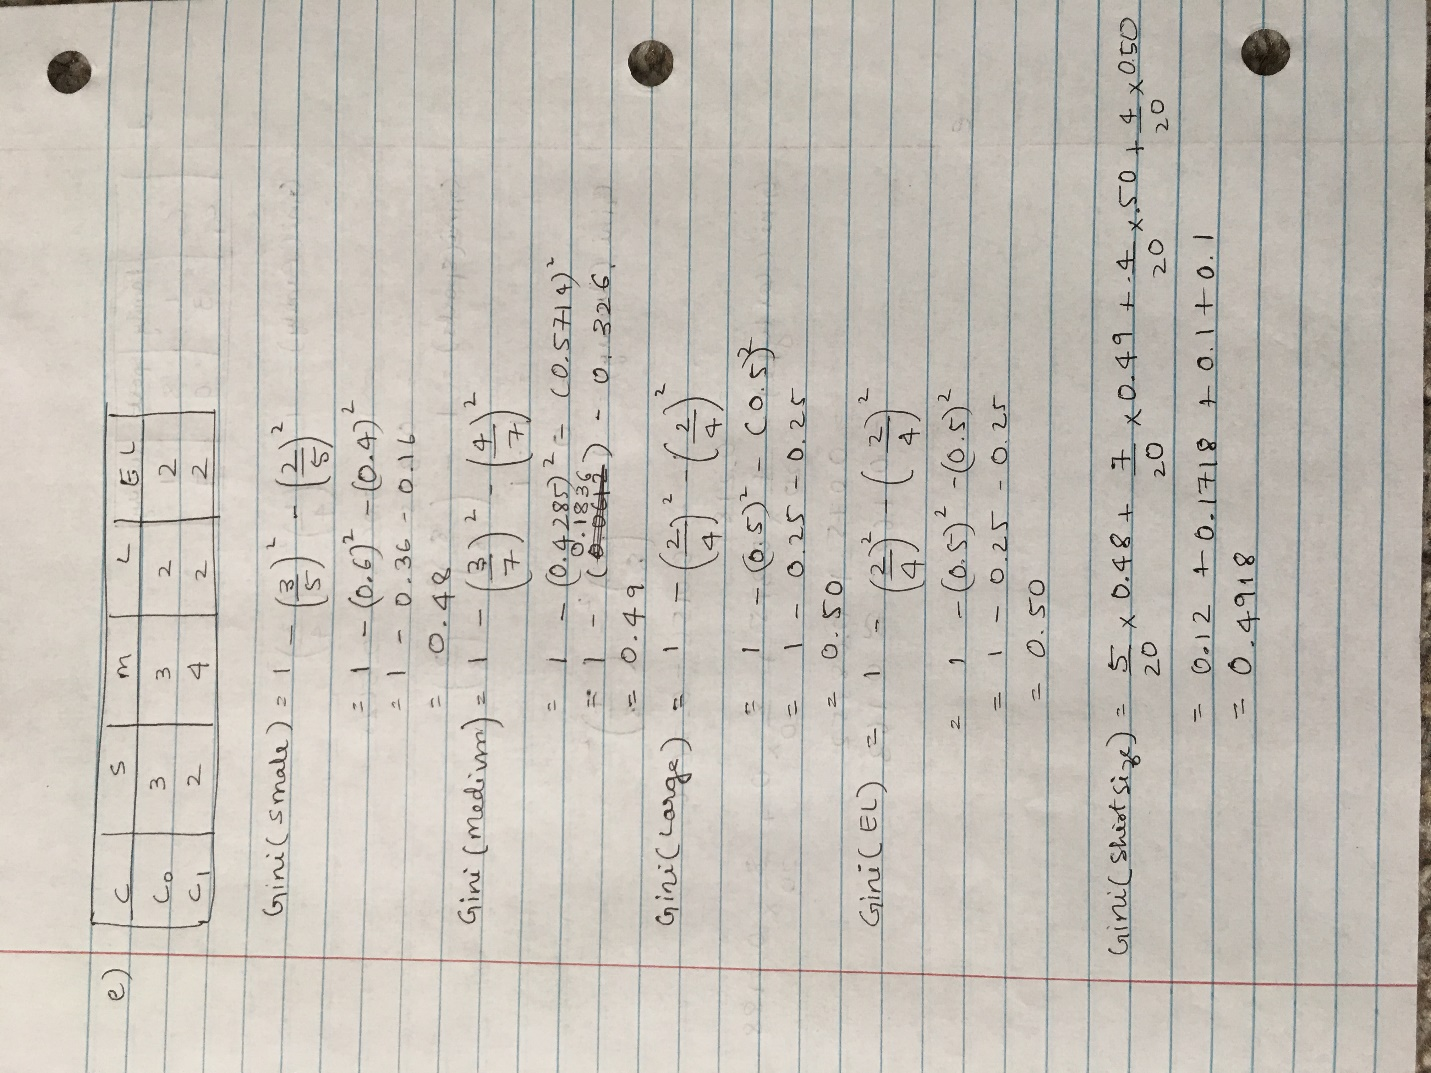 e)
C S m L EL
C0 3 3 2 2
C1 2 4 2 2
Gini(smale) = 1 - (3/5)² - (2/5)²
= 1 - (0.6)² - (0.4)²
= 1 - 0.36 - 0.16
= 0.48
Gini (medium) = 1 - (3/7)² - (4/7)²
= 1 - (0.4285)² = (0.5714)²
= 1 - (0.1836) - 0.326
= 0.49
Gini(Large) = 1 - (2/4)² - (2/4)²
= 1 - (0.5)² - (0.5)²
= 1 - 0.25 - 0.25
= 0.50
Gini(EL) = 1 - (2/4)² - (2/4)²
= 1 - (0.5)² - (0.5)²
= 1 - 0.25 - 0.25
= 0.50
Gini(shirt size) = 5/20 x 0.48 + 7/20 x 0.49 + 4/20 x .50 + 4/20 x 0.50
= 0.12 + 0.1718 + 0.1 + 0.1
= 0.4918